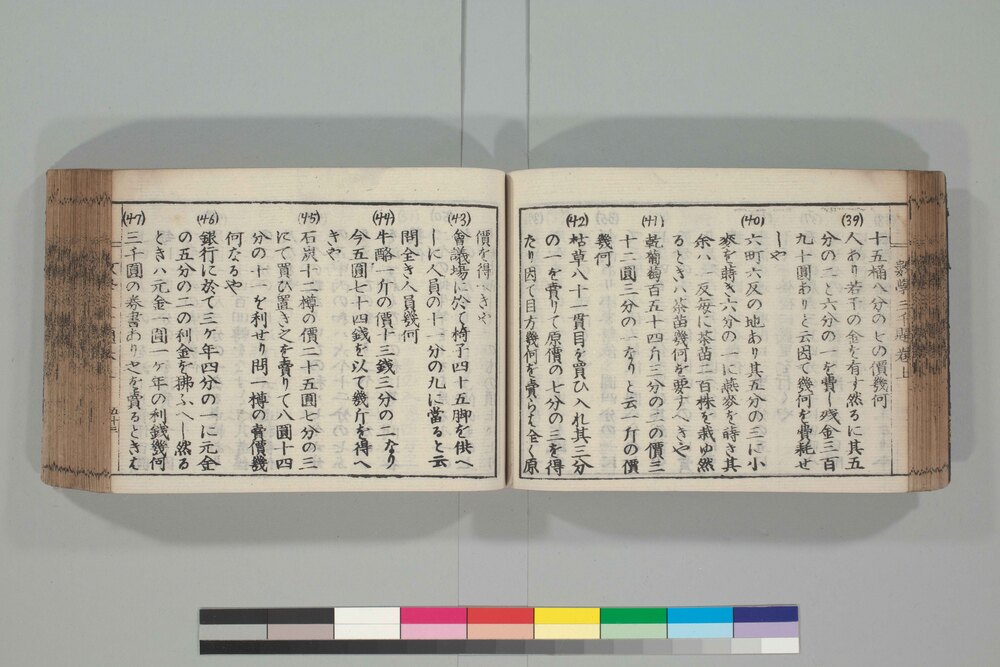 十五桶八分の七の價幾何
(39)
人あり若干の金を有す然るに其五
分の二と六分の一を費し残金三百
九十圓ありと云因て幾何を費耗せ
しや
(40)
六町六反の地あり其五分の三に小
麥を蒔き六分の一に燕麥を蒔き其
余ハ一反毎に茶苗二百株を栽ゆ然
るときハ茶苗幾何を要すべきや
(41)
乾葡萄百五十四斤三分の二の價三
十二圓三分の一なりと云一斤の價
幾何
(42)
枯草八十一貫目を買ひ入れ其三分
の一を賣りて原價の七分の三を得
たり因て目方幾何を賣らは全く原
價を得べきや
(43)
會議場に於て椅子四十五脚を供へ
しに人員の十一分の九に當ると云
問全き人員幾何
(44)
牛酪一斤の價十三錢三分の二なり
今五圓七十四錢を以て幾斤を得へ
きや
(45)
石炭十二樽の價二十五圓七分の三
にて買ひ置き之を賣りて八圓十四
分の十一を利せり問一樽の賣價幾
何なるや
(46)
銀行に於て三ケ年四分の一に元金
の五分の二の利金を拂ふへし然る
ときハ元金一圓一ケ年の利錢幾何
(47)
三千圓の券書あり之を賣るときは
五十三